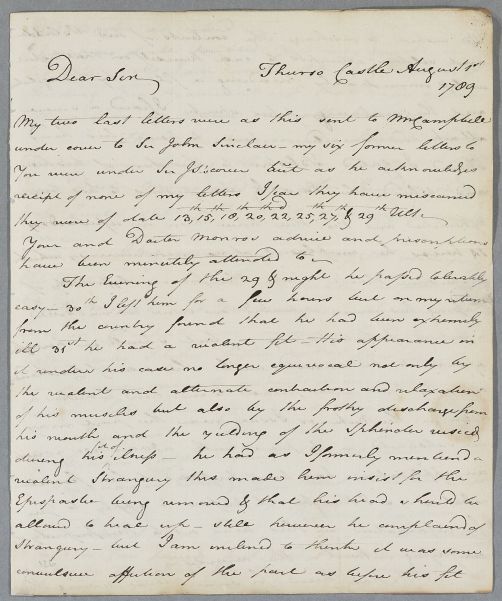 Dear Sir,
Thurso Castle August 1st
1789
My two last letters were as this sent to Mr Campbell
under cover to Sir John Sinclair – my six former letters to
You were under Sir J S: cover but as he acknowledges
receipt of none of my letters I fear they have miscarried
they were of date 13th, 15th, 18th, 20th, 22d, 25, 27th, & 29th Ult.
Your and Doctor Monros advice and prescriptions
have been minutely attended to –
The Evening of the 29 & night he passed tolerably
easy – 30th I left him for a few hours but on my return
from the country found that he had been extremely
ill 31st he had a violent fit – His appearance in
it renders his case no longer equivocal not only by
the violent and alternate contraction and relaxation
of his muscles but also by the frothy discharge from
his mouth and the yielding of the Sphincter vesicæ
during his illness – he had as I formerly mentiond a
violent Strangury this made him insist for the
Epispastic being removed & that his head should be
allowed to heal up – still however he complained of
Strangury – but I am inclined to think it was some
convulsive affection of the part as before his fit